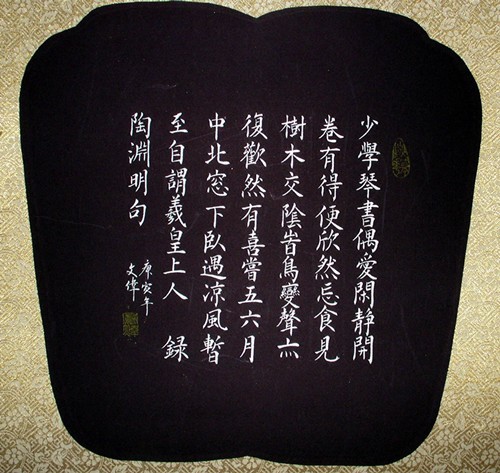 少學琴書偶愛閑靜開
卷有得便欣然忘食見
樹木交陰旹鳥變聲亦
復歡然有喜嘗五六月
中北窓下臥遇涼風暫
至自謂羲皇上人 録
陶淵明句
庚寅年
文偉